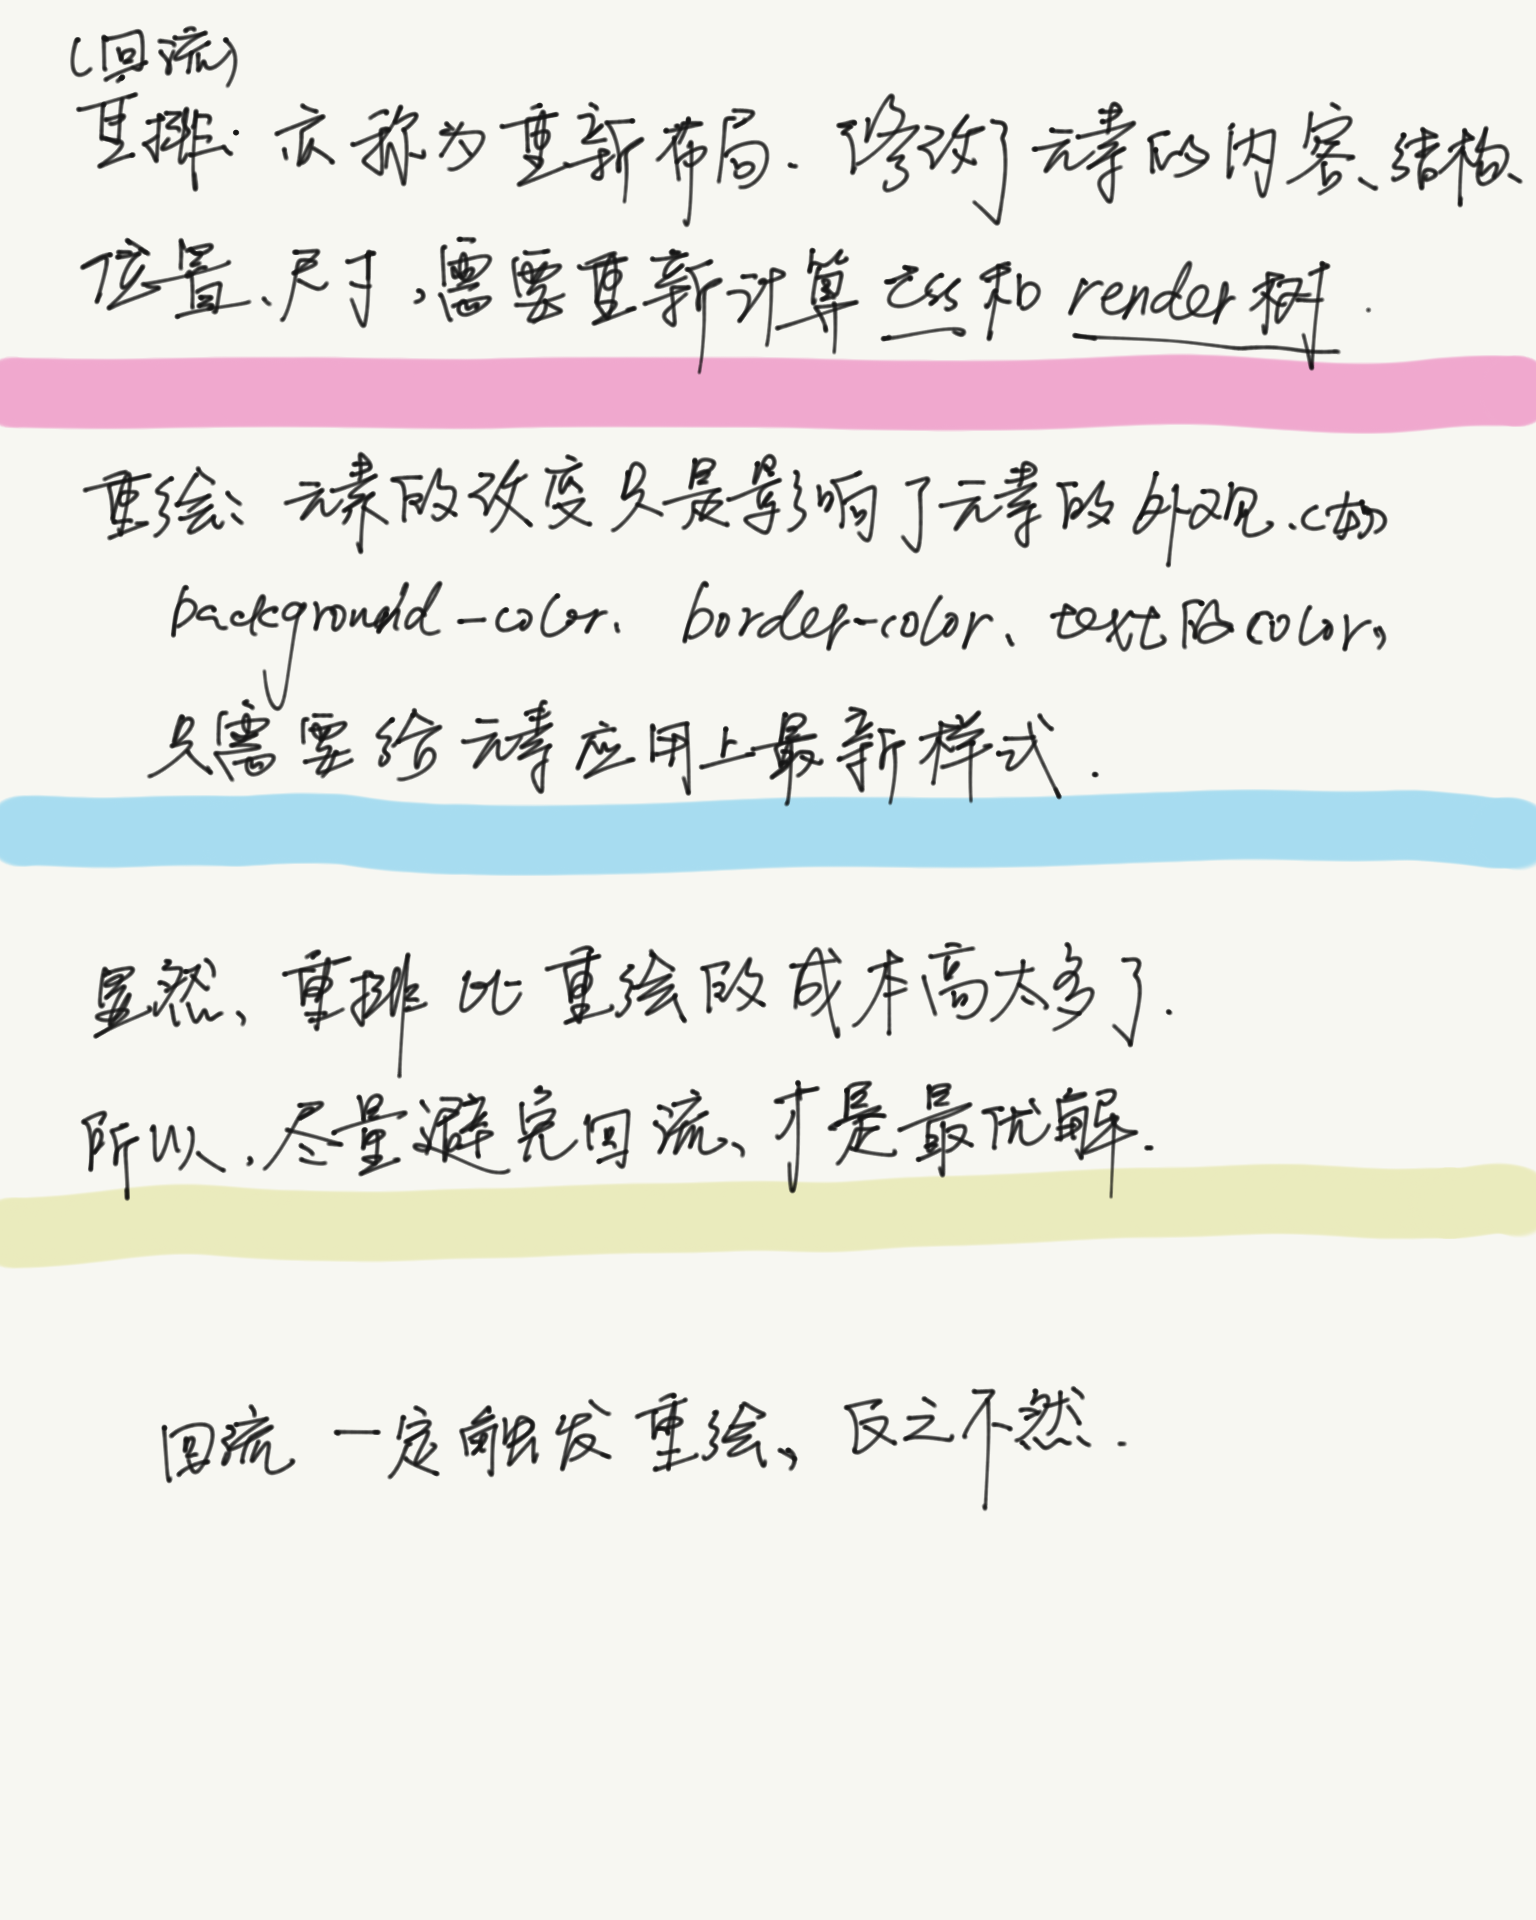 (回流)
重排: 亦称为重新布局. 修改了元素的内容、结构、
位置、尺寸,需要重新计算css和render树.
重绘: 元素的改变只是影响了元素的外观.(如
background-color、border-color、text的color,
只需要给元素应用上最新样式.
显然、重排比重绘的成本高太多了.
所以,尽量避免回流、才是最优解.
回流一定触发重绘、反之不然.